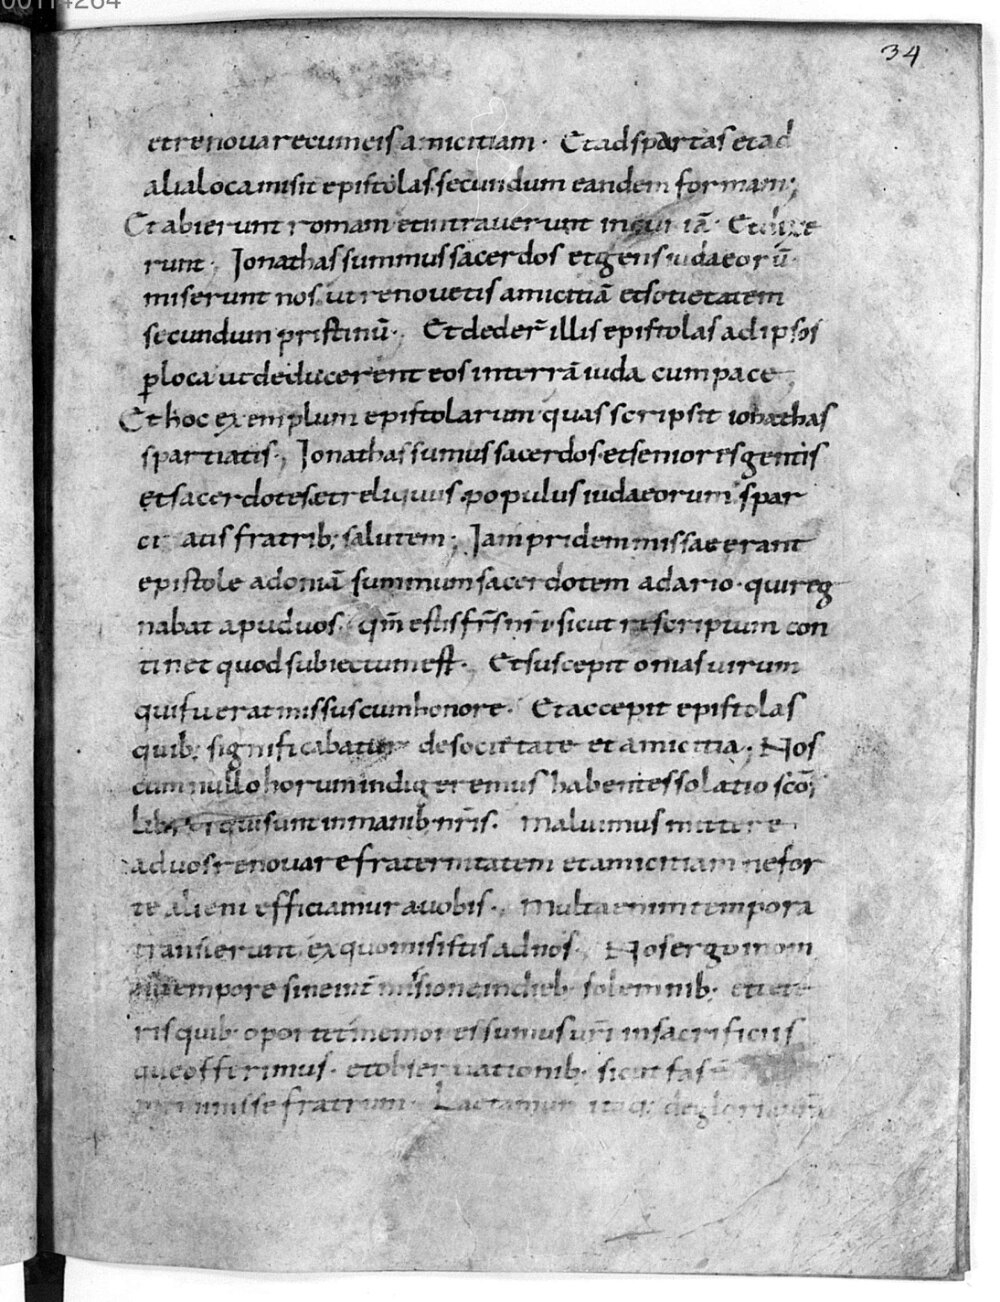 00114264
34
et renovare cum eis amicitiam. Et ad spartas et ad
alia loca misit epistolas secundum eandem formam;
Et abierunt romam et intraverunt in curiā. Et dixe
runt. Jonathas summus sacerdos et gens iudaeorū
miserunt nos ut renovetis amicitiā et sotietatem
secundum pristinū. Et dedeR̄ illis epistolas ad ipsos
ꝑ loca ut deducerent eos in terrā iuda cum pace
Et hoc exemplum epistolarum quas scripsit ionathas
spartiatis; Jonathas sumus sacerdos et seniores gentis
et sacerdotes et reliquus populus iudaeorum spar
ci atis fratrib; salutem; Jam pridem missae erant
epistole ad oniā summum sacerdotem a dario qui reg
nabat apud vos. qm̄ estis fr̄s nr̄i sicut rescriptum con
tinet quod subiectum est. Et suscepit onias virum
qui fuerat missus cum honore. Et accepit epistolas
quib; significabatur de societate et amicitia. Nos
cum nullo horum indigeremus habentes solatio sc̄o;
libros qui sunt in manib; nr̄is. maluimus mittere
ad vos renovare fraternitatem et amicitiam ne for
te alieni efficiamur a vobis. Multa enim tempora
transierunt ex quo misistis ad nos. Nos ergo in om
ni tempore sine intermisione in dieb; solemnib; et cete
ris quib; oportet memores sumus vr̄i in sacrificiis
que offerimus. et observationib; sicut fas ē
meminisse fratrum. Laetamur itaq; de gloria vr̄a